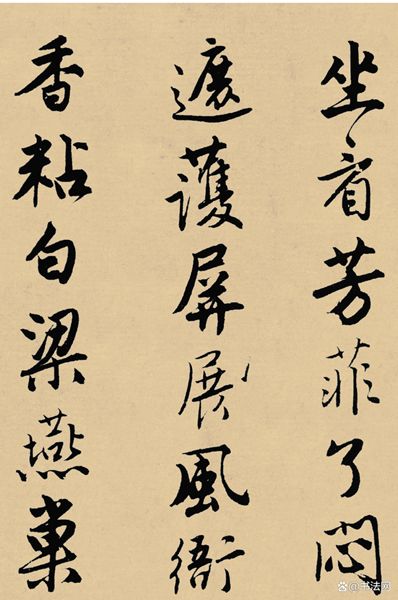 坐看芳菲了悶
遮護屏展風衙
香粘白梁燕巢
书法网